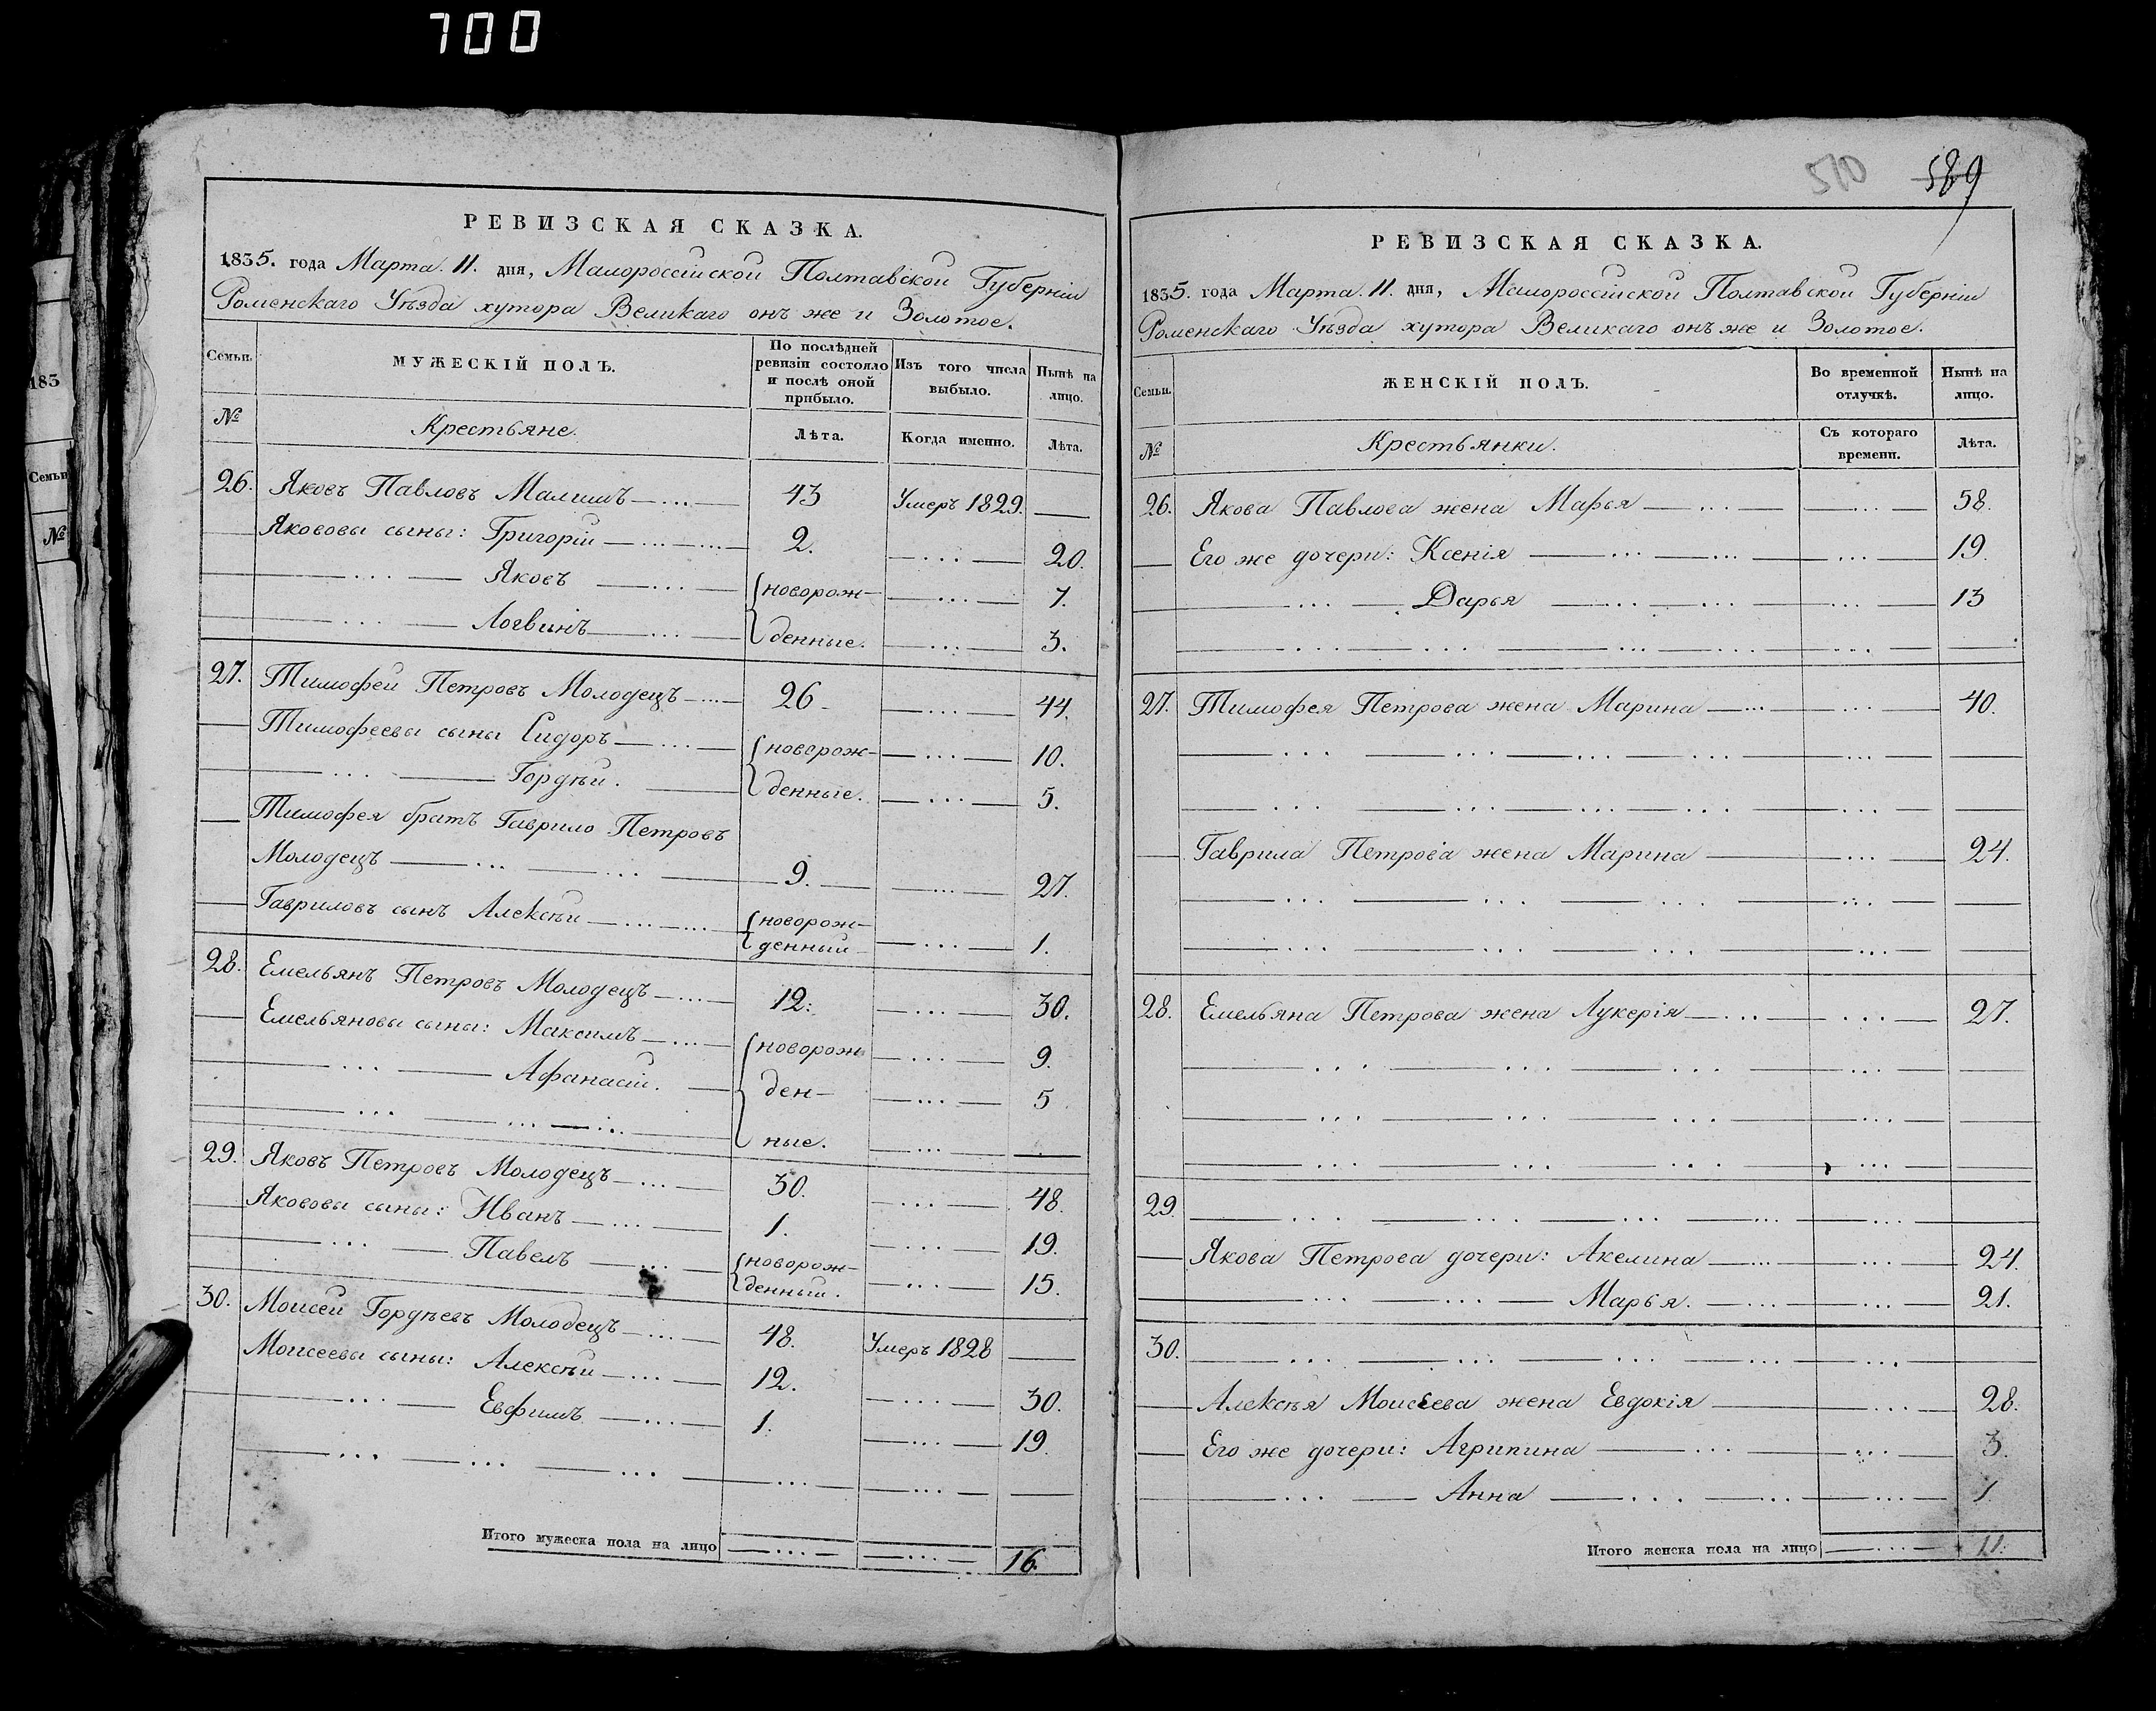 700
510 589
РЕВИЗСКАЯ СКАЗКА.
1835. года Марта. 11. дня, Малороссійской Полтавской Губерніи
Роменскаго Уѣзда хутора Великаго онъ же и Золотое.
Семьи. МУЖЕСКІЙ ПОЛЪ. По послѣдней ревизіи состояло и послѣ оной прибыло. Изъ того числа выбыло. Нынѣ на лицо.
№ Крестьяне. Лѣта. Когда именно. Лѣта.
26. Яковъ Павловъ Малишъ 43 Умеръ 1829.
Яковovы сыны: Григорій 2. 20.
Яковъ новорож- 7.
Логвинъ денные. 3.
27. Тимофей Петровъ Молодецъ 26 44.
Тимофеевы сыны Сидоръ новорож- 10.
Гордѣй. денные. 5.
Тимофея братъ Гаврило Петровъ
Молодецъ 9. 27.
Гавриловъ сынъ Алексѣй новорож-
денный 1.
28. Емельянъ Петровъ Молодецъ 12. 30.
Емельяновы сыны: Максимъ новорож 9.
Афанасій. ден- 5
ные.
29. Яковъ Петровъ Молодецъ 30. 48.
Якововы сыны: Иванъ 1. 19.
Павелъ новорож-
денный. 15.
30. Моисей Гордѣевъ Молодецъ 48. Умеръ 1828
Моисеевы сыны: Алексѣй 12. 30.
Евфимъ 1. 19.
Итого мужеска пола на лицо 16.
РЕВИЗСКАЯ СКАЗКА.
1835. года Марта. 11. дня, Малороссійской Полтавской Губерніи
Роменскаго Уѣзда хутора Великаго онъ же и Золотое.
Семьи. ЖЕНСКІЙ ПОЛЪ. Во временной отлучкѣ. Нынѣ на лицо.
№ Крестьянки. Съ котораго времени. Лѣта.
26. Якова Павлова жена Марья 58.
Его же дочери: Ксенія 19.
Дарья 13
27. Тимофея Петрова жена Марина 40.
Гаврила Петрова жена Марина 24.
28. Емельяна Петрова жена Лукерія 27.
29.
Якова Петрова дочери: Акелина 24.
Марья. 21.
30.
Алексѣя Моисеева жена Евдокія 28.
Его же дочери: Агрипина 3.
Анна 1.
Итого женска пола на лицо 11.
183
Семьи
№